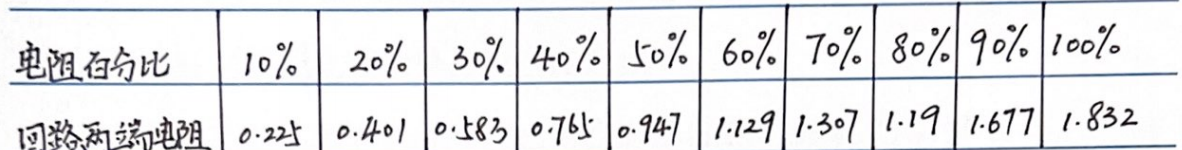 电阻百分比 10% 20% 30% 40% 50% 60% 70% 80% 90% 100%
回路两端电阻 0.225 0.401 0.583 0.765 0.947 1.129 1.307 1.19 1.677 1.832